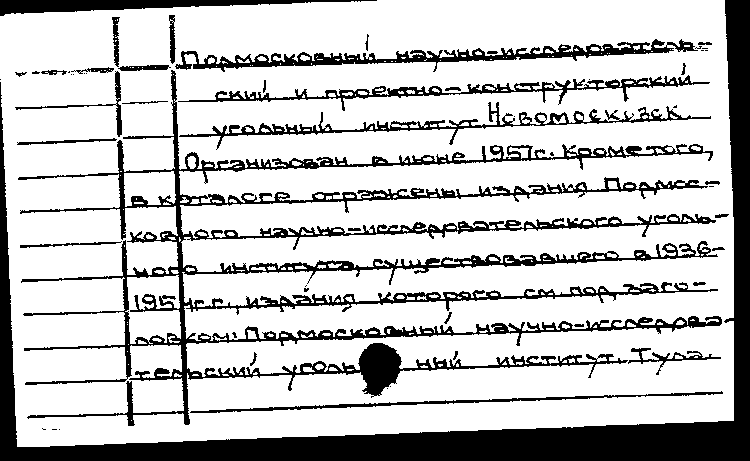 Подмосковный научно-исследователь-
ский и проектно-конструкторский
угольный институт. Новомосковск.
Организован в июне 1957г. Кроме того,
в каталоге отражены издания Подмос-
ковного научно-исследовательского уголь-
ного института, существовавшего в 1936-
1954гг., издания которого см. под заго-
ловком: Подмосковный научно-исследова-
тельский уголь ный институт. Тула.